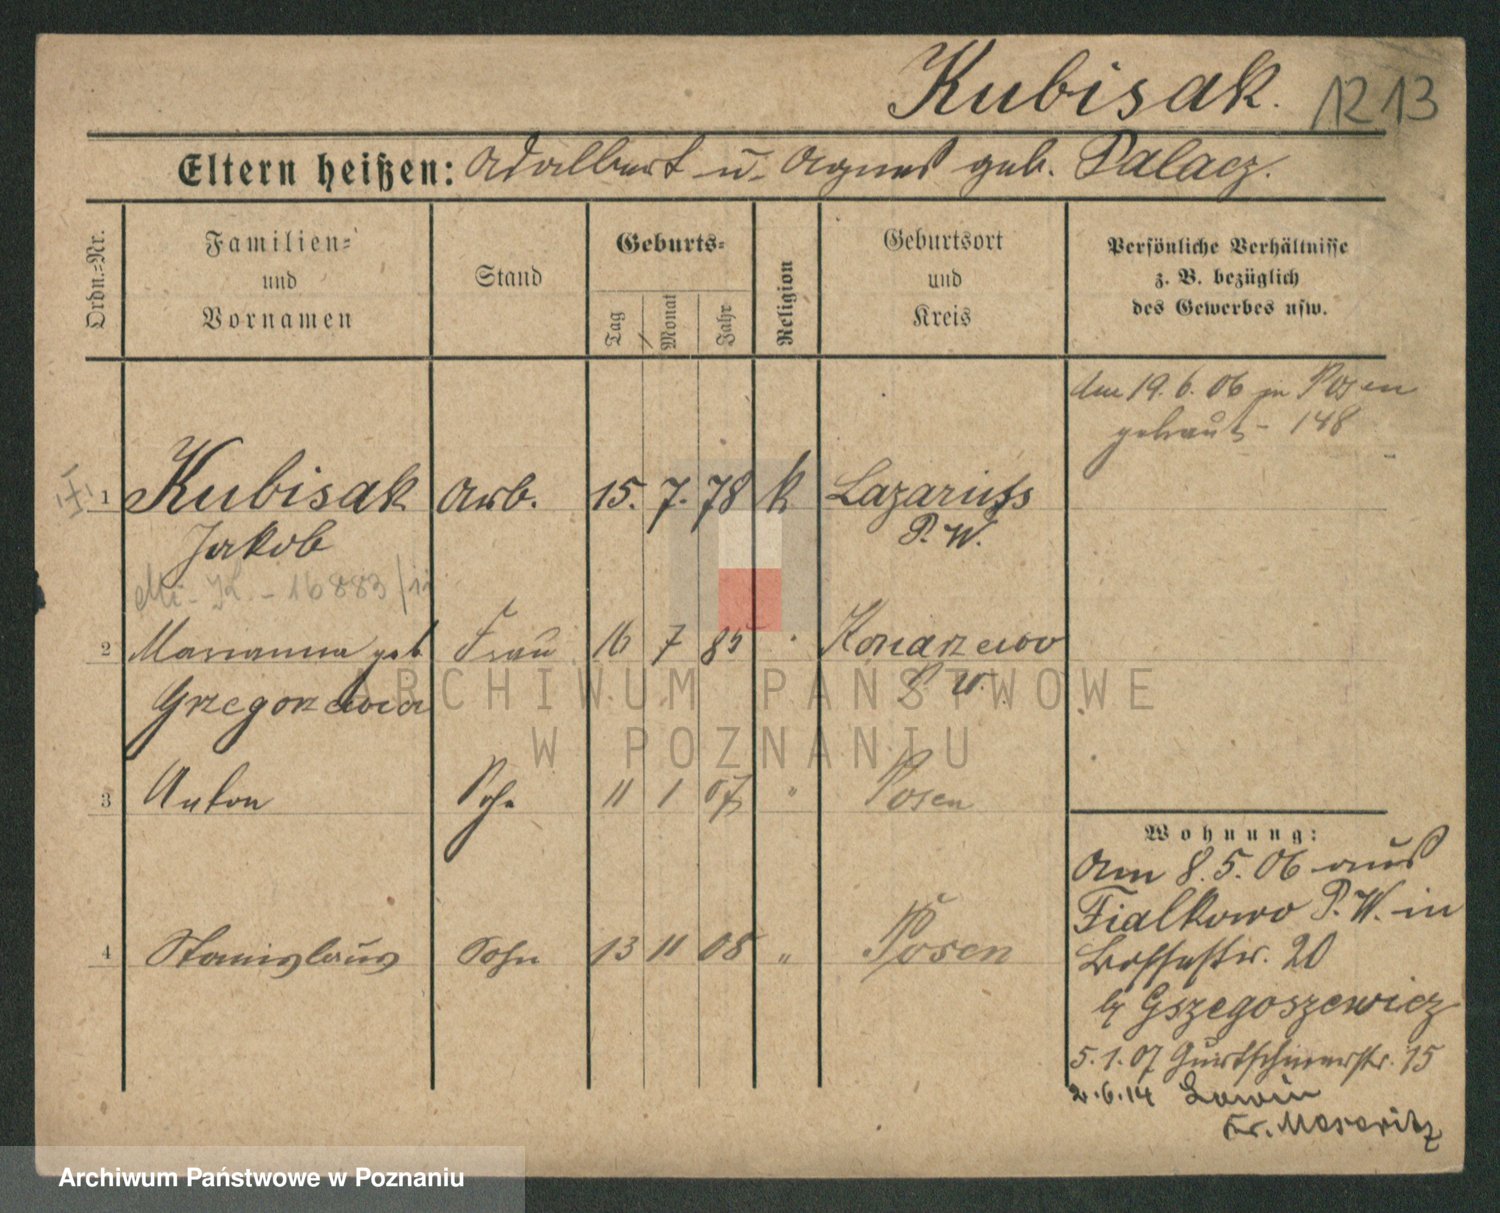 Kubisak.
1213
Eltern heißen: Adalbert u. Agnes geb. Palacz.
Ordn.=Nr.
Familien=
und
Vornamen
Stand
Geburts=
Tag
Monat
Jahr
Religion
Geburtsort
und
Kreis
Persönliche Verhältnisse
z. B. bezüglich
des Gewerbes usw.
den 19.6.06 in Posen
getraut - 148
1 Kubisak Arb. 15. 7. 78 k. Lazarus
Jakob P. W.
Mi - K. - 16883/11
2 Marianna geb Frau 16 7 85 Konarzewo
Grzegorzewicz P. W.
3 Anton Sohn 11 1 07 " Posen
4 Stanislaus Sohn 13 11 08 " Posen
Wohnung:
Am 8.5.06 aus
Fialkowo P. W. in
20
by Gszegoszewicz
5.1.07 Gurtschinerstr. 15
2.6.14
Kr. Meseritz
ARCHIWUM PAŃSTWOWE
W POZNANIU
Archiwum Państwowe w Poznaniu